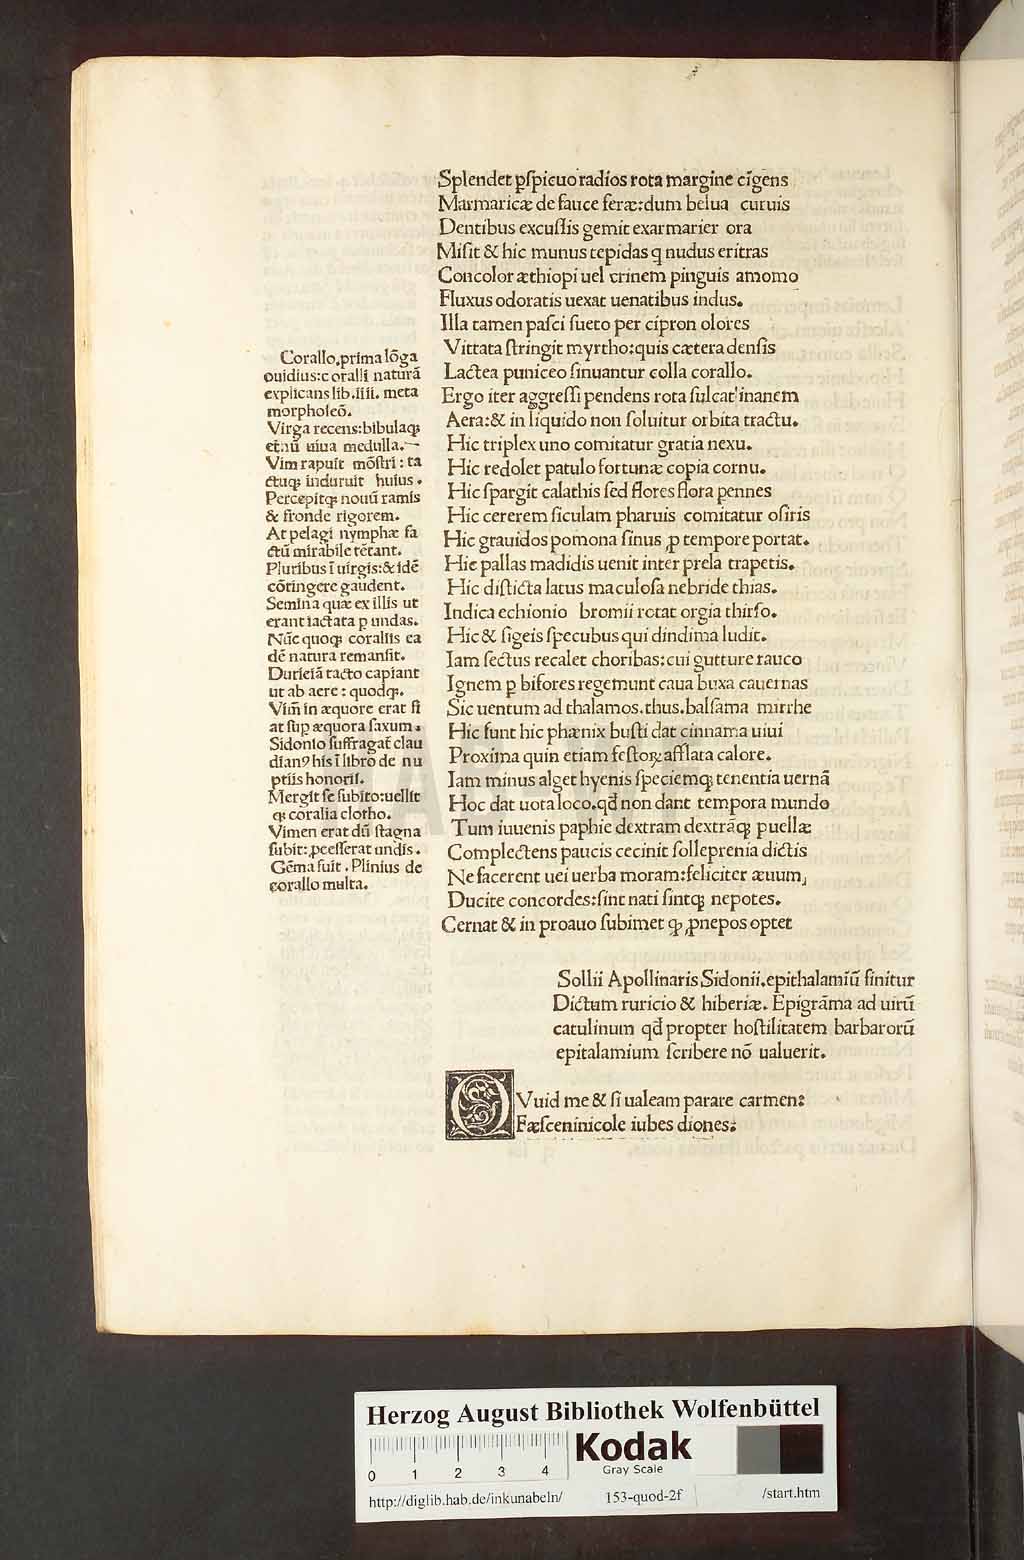 Splendet ꝑſpicuo radios rota margine cīgens
Marmaricæ de fauce feræ: dum belua curuis
Dentibus excuſſis gemit exarmarier ora
Miſit & hic munus tepidas q nudus eritras
Concolor æthiopi uel crinem pinguis amomo
Fluxus odoratis uexat uenatibus indus.
Illa tamen paſci ſueto per cipron olores
Vittata ſtringit myrtho: quis cætera denſis
Lactea puniceo ſinuantur colla corallo.
Ergo iter aggreſſi pendens rota ſulcat' inanem
Aera: & in liquido non ſoluitur orbita tractu.
Hic triplex uno comitatur gratia nexu.
Hic redolet patulo fortunæ copia cornu.
Hic ſpargit calathis ſed flores flora pennes
Hic cererem ſiculam pharuis comitatur oſiris
Hic grauidos pomona ſinus ꝓ tempore portat.
Hic pallas madidis uenit inter prela trapetis.
Hic diſticta latus maculoſa nebride thias.
Indica echionio bromii rotat orgia thirſo.
Hic & ſigeis ſpecubus qui dindima ludit.
Iam ſectus recalet choribas: cui gutture rauco
Ignem ꝑ bifores regemunt caua buxa cauernas
Sic uentum ad thalamos. thus. balſama mirrhe
Hic ſunt hic phœnix buſti dat cinnama uiui
Proxima quin etiam feſtoꝝ afflata calore.
Iam minus alget hyenis ſpeciemq; tenentia uernā
Hoc dat uota loco. qd̄ non dant tempora mundo
Tum iuuenis paphie dextram dextrāq; puellæ
Complectens paucis cecinit ſolleprenia dictis
Ne facerent uei uerba moram: feliciter æuum,
Ducite concordes: ſint nati ſintq; nepotes.
Cernat & in proauo ſubimet q; ꝓnepos optet
Corallo. prima lōga
ouidius: coralli naturā
explicans lib. iiii. meta
morpholeō.
Virga recens: bibulaq;
etnū uiua medulla.
Vim rapuit mōſtri: ta
ctuq; induruit huius.
Percepitq; nouū ramis
& fronde rigorem.
At pelagi nymphæ fa
ctū mirabile tētant.
Pluribus ī uirgis: & idē
cōtingere gaudent.
Semina quæ ex illis ut
erant iactata ꝑ undas.
Nūc quoq; coraliis ea
dē natura remanſit.
Duriciā tacto capiant
ut ab aere: quodq;.
Vim̄ in æquore erat fi
at ſuꝑ æquora ſaxum.
Sidonio ſuffragat̄ clau
dianꝰ his ī libro de nu
ptiis honorii.
Mergit ſe ſubito: uellit
q; coralia clotho.
Vimen erat dū ſtagna
ſubit: ꝓceſſerat undis.
Gēma fuit. Plinius de
corallo multa.
Sollii Apollinaris Sidonii. epithalamiū finitur
Dictum ruricio & hiberiæ. Epigrāma ad uirū
catulinum qd̄ propter hoſtilitatem barbarorū
epitalamium ſcribere nō ualuerit.
QVuid me & ſi ualeam parare carmen:
Fæſceninicole iubes diones:
HAB-WF
Herzog August Bibliothek Wolfenbüttel
0 1 2 3 4
Kodak
Gray Scale
http://diglib.hab.de/inkunabeln/ 153-quod-2f /start.htm